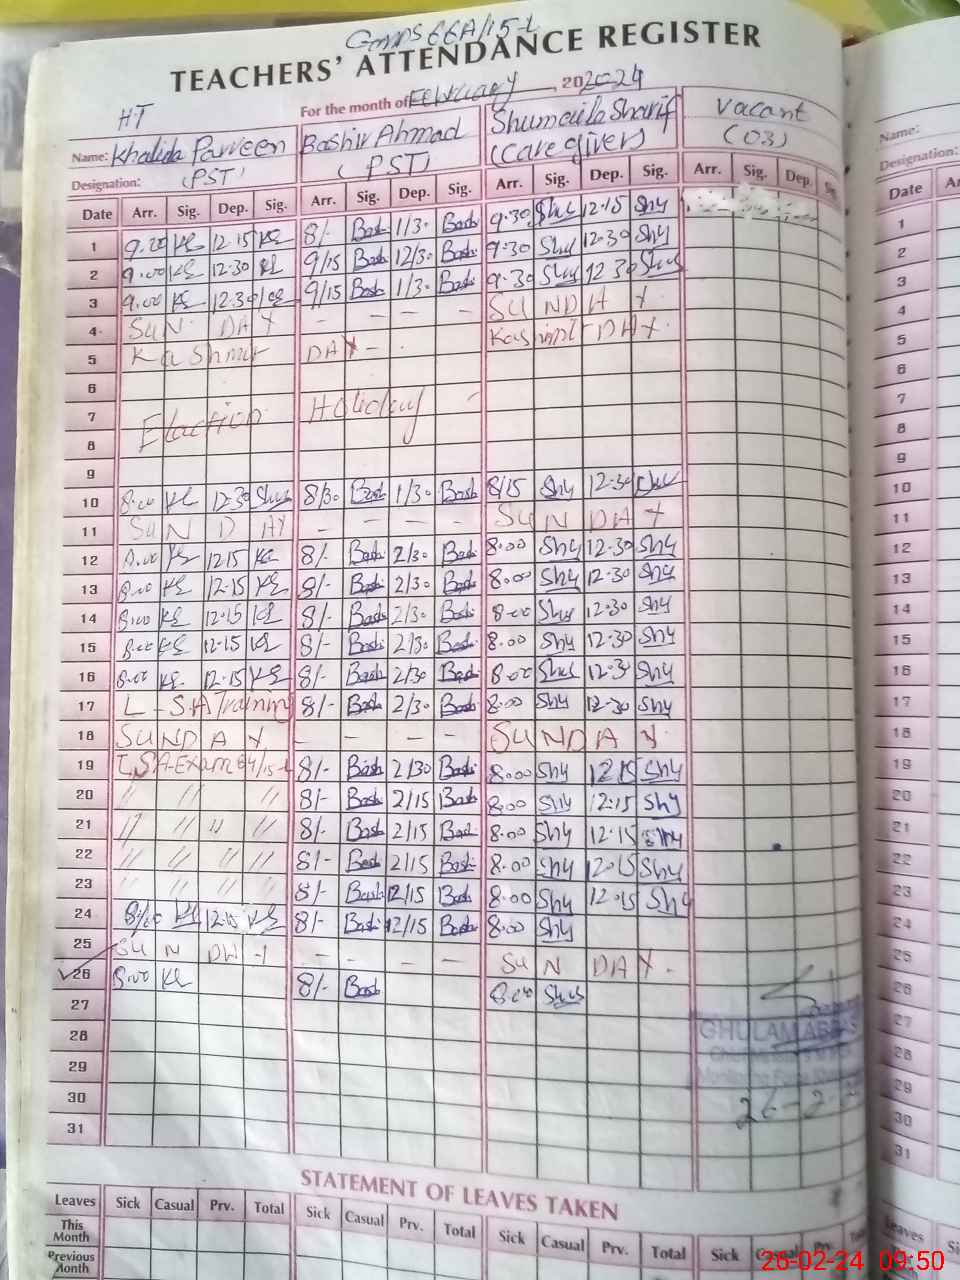 GMPS 66A/15-L
TEACHERS' ATTENDANCE REGISTER
For the month of February, 2024
HT
Name: Khalida Parveen Bashir Ahmad Shumaila Sharif Vacant
Designation: (PST) (PST) (Care giver) (03)
Date Arr. Sig. Dep. Sig. Arr. Sig. Dep. Sig. Arr. Sig. Dep. Sig. Arr. Sig. Dep. Sig.
1 9.20 KE 12.15 KE 8/- Bash 1/30 Bash 9.30 Shu 12.15 Shy
2 9.00 KE 12.30 KE 9/15 Bash 12/30 Bash 9.30 Shy 12.30 Shy
3 9.00 KE 12.30 KE 9/15 Bash 1/30 Bash 9.30 Shy 12.30 Shy
4 SUN DAY - - - - SUNDAY
5 Kashmir DAY - Kashmir DAY
6
7 Elaction Holiday
8
9
10 8.00 KE 12.30 Shy 8/30 Bash 1/30 Bash 8/15 Shy 12.30 Shy
11 SUN DAY - - - - SUN DAY
12 8.00 KE 12.15 KE 8/- Bash 2/30 Bash 8.00 Shy 12.30 Shy
13 8.00 KE 12.15 KE 8/- Bash 2/30 Bash 8.00 Shy 12.30 Shy
14 8.00 KE 12.15 KE 8/- Bash 2/30 Bash 8.00 Shy 12.30 Shy
15 8.00 KE 12.15 KE 8/- Bash 2/30 Bash 8.00 Shy 12.30 Shy
16 8.00 KE 12.15 KE 8/- Bash 2/30 Bash 8.00 Shy 12.30 Shy
17 L-SA Training 8/- Bash 2/30 Bash 8.00 Shy 12.30 Shy
18 SUNDAY - - - - SUNDAY
19 LSA-Exam 64/15-L 8/- Bash 2/30 Bash 8.00 Shy 12.15 Shy
20 // // // 8/- Bash 2/15 Bash 8.00 Shy 12.15 Shy
21 // // // // 8/- Bash 2/15 Bash 8.00 Shy 12.15 Shy
22 // // // // 8/- Bash 2/15 Bash 8.00 Shy 12.15 Shy
23 // // // // 8/- Bash 12/15 Bash 8.00 Shy 12.15 Shy
24 8/00 KE 12.15 KE 8/- Bash 12/15 Bash 8.00 Shy
25 SUN DAY - - - - SUN DAY
26 8.00 KE 8/- Bash 8.00 Shy
27
28 GHULAM ABBAS
29
30 26-2-24
31
STATEMENT OF LEAVES TAKEN
Leaves Sick Casual Prv. Total Sick Casual Prv. Total Sick Casual Prv. Total Sick Casual Prv. Total
This Month
Previous Month
Name:
Designation:
Date
1
2
3
4
5
6
7
8
9
10
11
12
13
14
15
16
17
18
19
20
21
22
23
24
25
26
27
28
29
30
31
Leaves
This Month
26-02-24 09:50